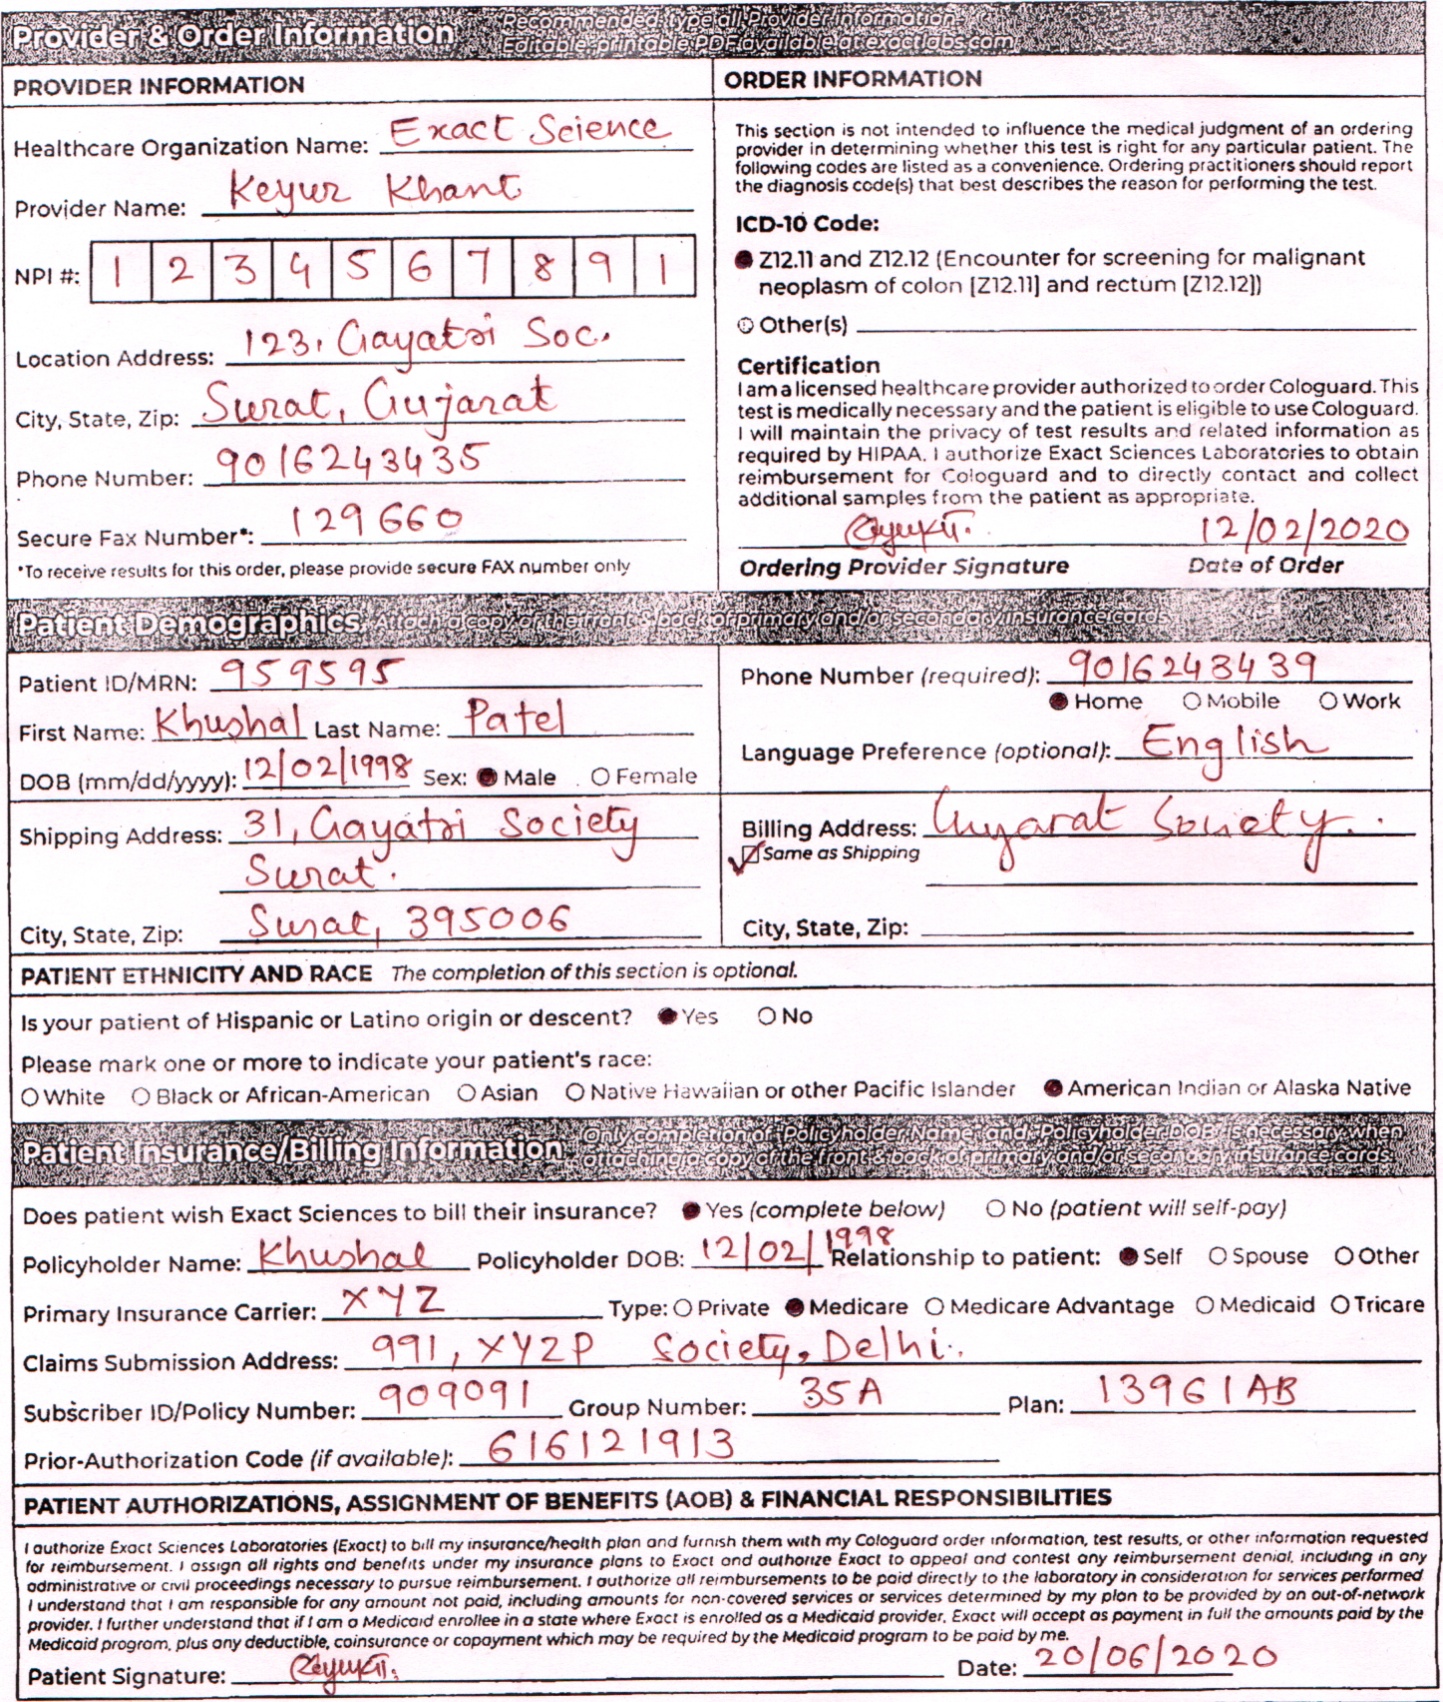 Provider & Order Information
Recommended: type all Provider Information
Editable-printable PDF available at exactlabs.com
PROVIDER INFORMATION
Healthcare Organization Name: Exact Science
Provider Name: Keyur Khant
NPI #: 1 2 3 4 5 6 7 8 9 1
Location Address: 123, Gayatri Soc.
City, State, Zip: Surat, Gujarat
Phone Number: 9016243435
Secure Fax Number*: 129660
*To receive results for this order, please provide secure FAX number only
ORDER INFORMATION
This section is not intended to influence the medical judgment of an ordering
provider in determining whether this test is right for any particular patient. The
following codes are listed as a convenience. Ordering practitioners should report
the diagnosis code(s) that best describes the reason for performing the test.
ICD-10 Code:
Z12.11 and Z12.12 (Encounter for screening for malignant
neoplasm of colon [Z12.11] and rectum [Z12.12])
Other(s)
Certification
I am a licensed healthcare provider authorized to order Cologuard. This
test is medically necessary and the patient is eligible to use Cologuard.
I will maintain the privacy of test results and related information as
required by HIPAA. I authorize Exact Sciences Laboratories to obtain
reimbursement for Cologuard and to directly contact and collect
additional samples from the patient as appropriate.
12/02/2020
Ordering Provider Signature Date of Order
Patient Demographics Attach a copy of the front & back of primary and/or secondary insurance cards
Patient ID/MRN: 959595
First Name: Khushal Last Name: Patel
DOB (mm/dd/yyyy): 12/02/1998 Sex: Male Female
Phone Number (required): 9016243439
Home Mobile Work
Language Preference (optional): English
Shipping Address: 31, Gayatri Society
Surat.
City, State, Zip: Surat, 395006
Billing Address: Gujarat Society.
Same as Shipping
City, State, Zip:
PATIENT ETHNICITY AND RACE The completion of this section is optional.
Is your patient of Hispanic or Latino origin or descent? Yes No
Please mark one or more to indicate your patient's race:
White Black or African-American Asian Native Hawaiian or other Pacific Islander American Indian or Alaska Native
Patient Insurance/Billing Information
Only completion of "Policyholder Name" and "Policyholder DOB" is necessary when
attaching a copy of the front & back of primary and/or secondary insurance cards.
Does patient wish Exact Sciences to bill their insurance? Yes (complete below) No (patient will self-pay)
Policyholder Name: Khushal Policyholder DOB: 12/02/1998 Relationship to patient: Self Spouse Other
Primary Insurance Carrier: XYZ Type: Private Medicare Medicare Advantage Medicaid Tricare
Claims Submission Address: 991, XYZP Society, Delhi.
Subscriber ID/Policy Number: 909091 Group Number: 35A Plan: 13961AB
Prior-Authorization Code (if available): 616121913
PATIENT AUTHORIZATIONS, ASSIGNMENT OF BENEFITS (AOB) & FINANCIAL RESPONSIBILITIES
I authorize Exact Sciences Laboratories (Exact) to bill my insurance/health plan and furnish them with my Cologuard order information, test results, or other information requested
for reimbursement. I assign all rights and benefits under my insurance plans to Exact and authorize Exact to appeal and contest any reimbursement denial, including in any
administrative or civil proceedings necessary to pursue reimbursement. I authorize all reimbursements to be paid directly to the laboratory in consideration for services performed
I understand that I am responsible for any amount not paid, including amounts for non-covered services or services determined by my plan to be provided by an out-of-network
provider. I further understand that if I am a Medicaid enrollee in a state where Exact is enrolled as a Medicaid provider, Exact will accept as payment in full the amounts paid by the
Medicaid program, plus any deductible, coinsurance or copayment which may be required by the Medicaid program to be paid by me.
Patient Signature: Date: 20/06/2020